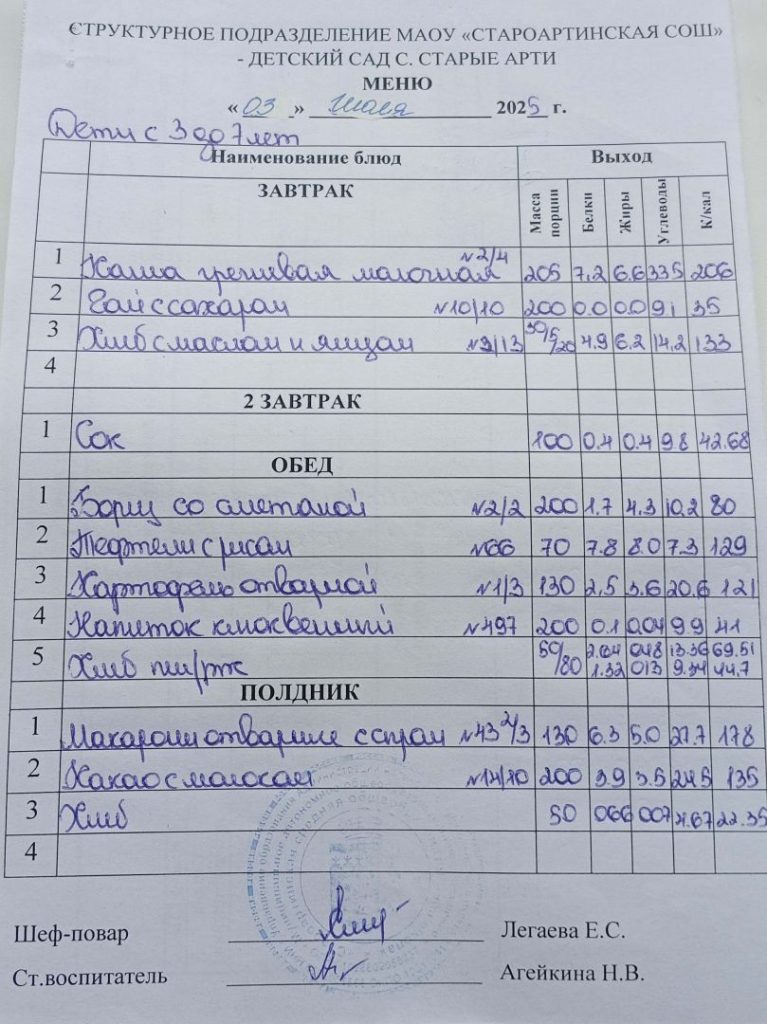 СТРУКТУРНОЕ ПОДРАЗДЕЛЕНИЕ МАОУ «СТАРОАРТИНСКАЯ СОШ»
- ДЕТСКИЙ САД С. СТАРЫЕ АРТИ
МЕНЮ
« 03 » Июля 2025 г.
Дети с 3 до 7 лет
Наименование блюд Выход
ЗАВТРАК Масса порции Белки Жиры Углеводы К/кал
1 Каша гречневая молочная №2/4 205 7.2 6.6 33.5 206
2 Чай с сахаром №10/10 200 0.0 0.0 9.1 35
3 Хлеб с маслом и яйцом №9/13 30/5/20 4.9 6.2 14.2 133
4
2 ЗАВТРАК
1 Сок 100 0.4 0.4 9.8 42.68
ОБЕД
1 Борщ со сметаной №2/2 200 1.7 4.3 10.2 80
2 Тефтели с рисом №66 70 7.8 8.0 7.3 129
3 Картофель отварной №1/3 130 2,5 3.6 20.6 121
4 Напиток клюквенный №497 200 0.1 0.04 9.9 41
5 Хлеб пш/рж 50/80 2.64 0.48 13.36 69.51
1.32 013 9.34 44.7
ПОЛДНИК
1 Макароны отварные с сыром №43 2/3 130 6.3 5.0 27.7 178
2 Какао с молоком №14/10 200 3.9 3.5 24.5 135
3 Хлеб 50 066 007 4.67 22.35
4
Шеф-повар Легаева Е.С.
Ст.воспитатель Агейкина Н.В.